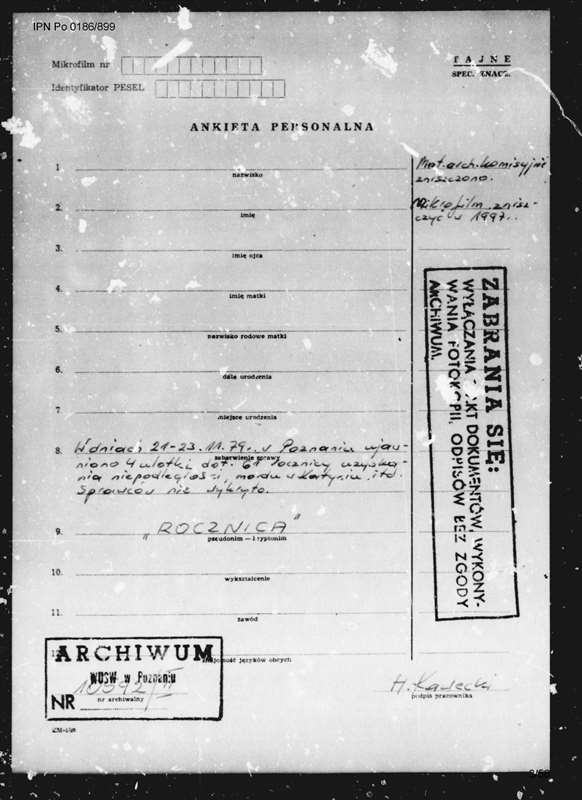 IPN Po 0186/899
Mikrofilm nr
Identyfikator PESEL
TAJNE
SPEC. ZNACZ.
ANKIETA PERSONALNA
1.
nazwisko
2.
imię
3.
imię ojca
4.
imię matki
5.
nazwisko rodowe matki
6.
data urodzenia
7.
miejsce urodzenia
8.
W dniach 21-23.11.79r. w Poznaniu ujaw-
zabarwienie sprawy
niono 4 ulotki dot. 61 rocznicy uzyska-
nia niepodległości, mordu w Katyniu itd.
Sprawców nie wykryto.
9.
"ROCZNICA"
pseudonim — kryptonim
10.
wykształcenie
11.
zawód
znajomość języków obcych
Mat. arch. komisyjnie
zniszczono.
Mikrofilm znisz-
czyć w 1997r.
ZABRANIA SIĘ:
WYŁĄCZANIA Z AKT DOKUMENTÓW, WYKONY-
WANIA FOTOKOPII, ODPISÓW BEZ ZGODY
ARCHIWUM.
ARCHIWUM
WUSW w Poznaniu
NR 10592/II
nr archiwalny
H. Kawecki
podpis pracownika